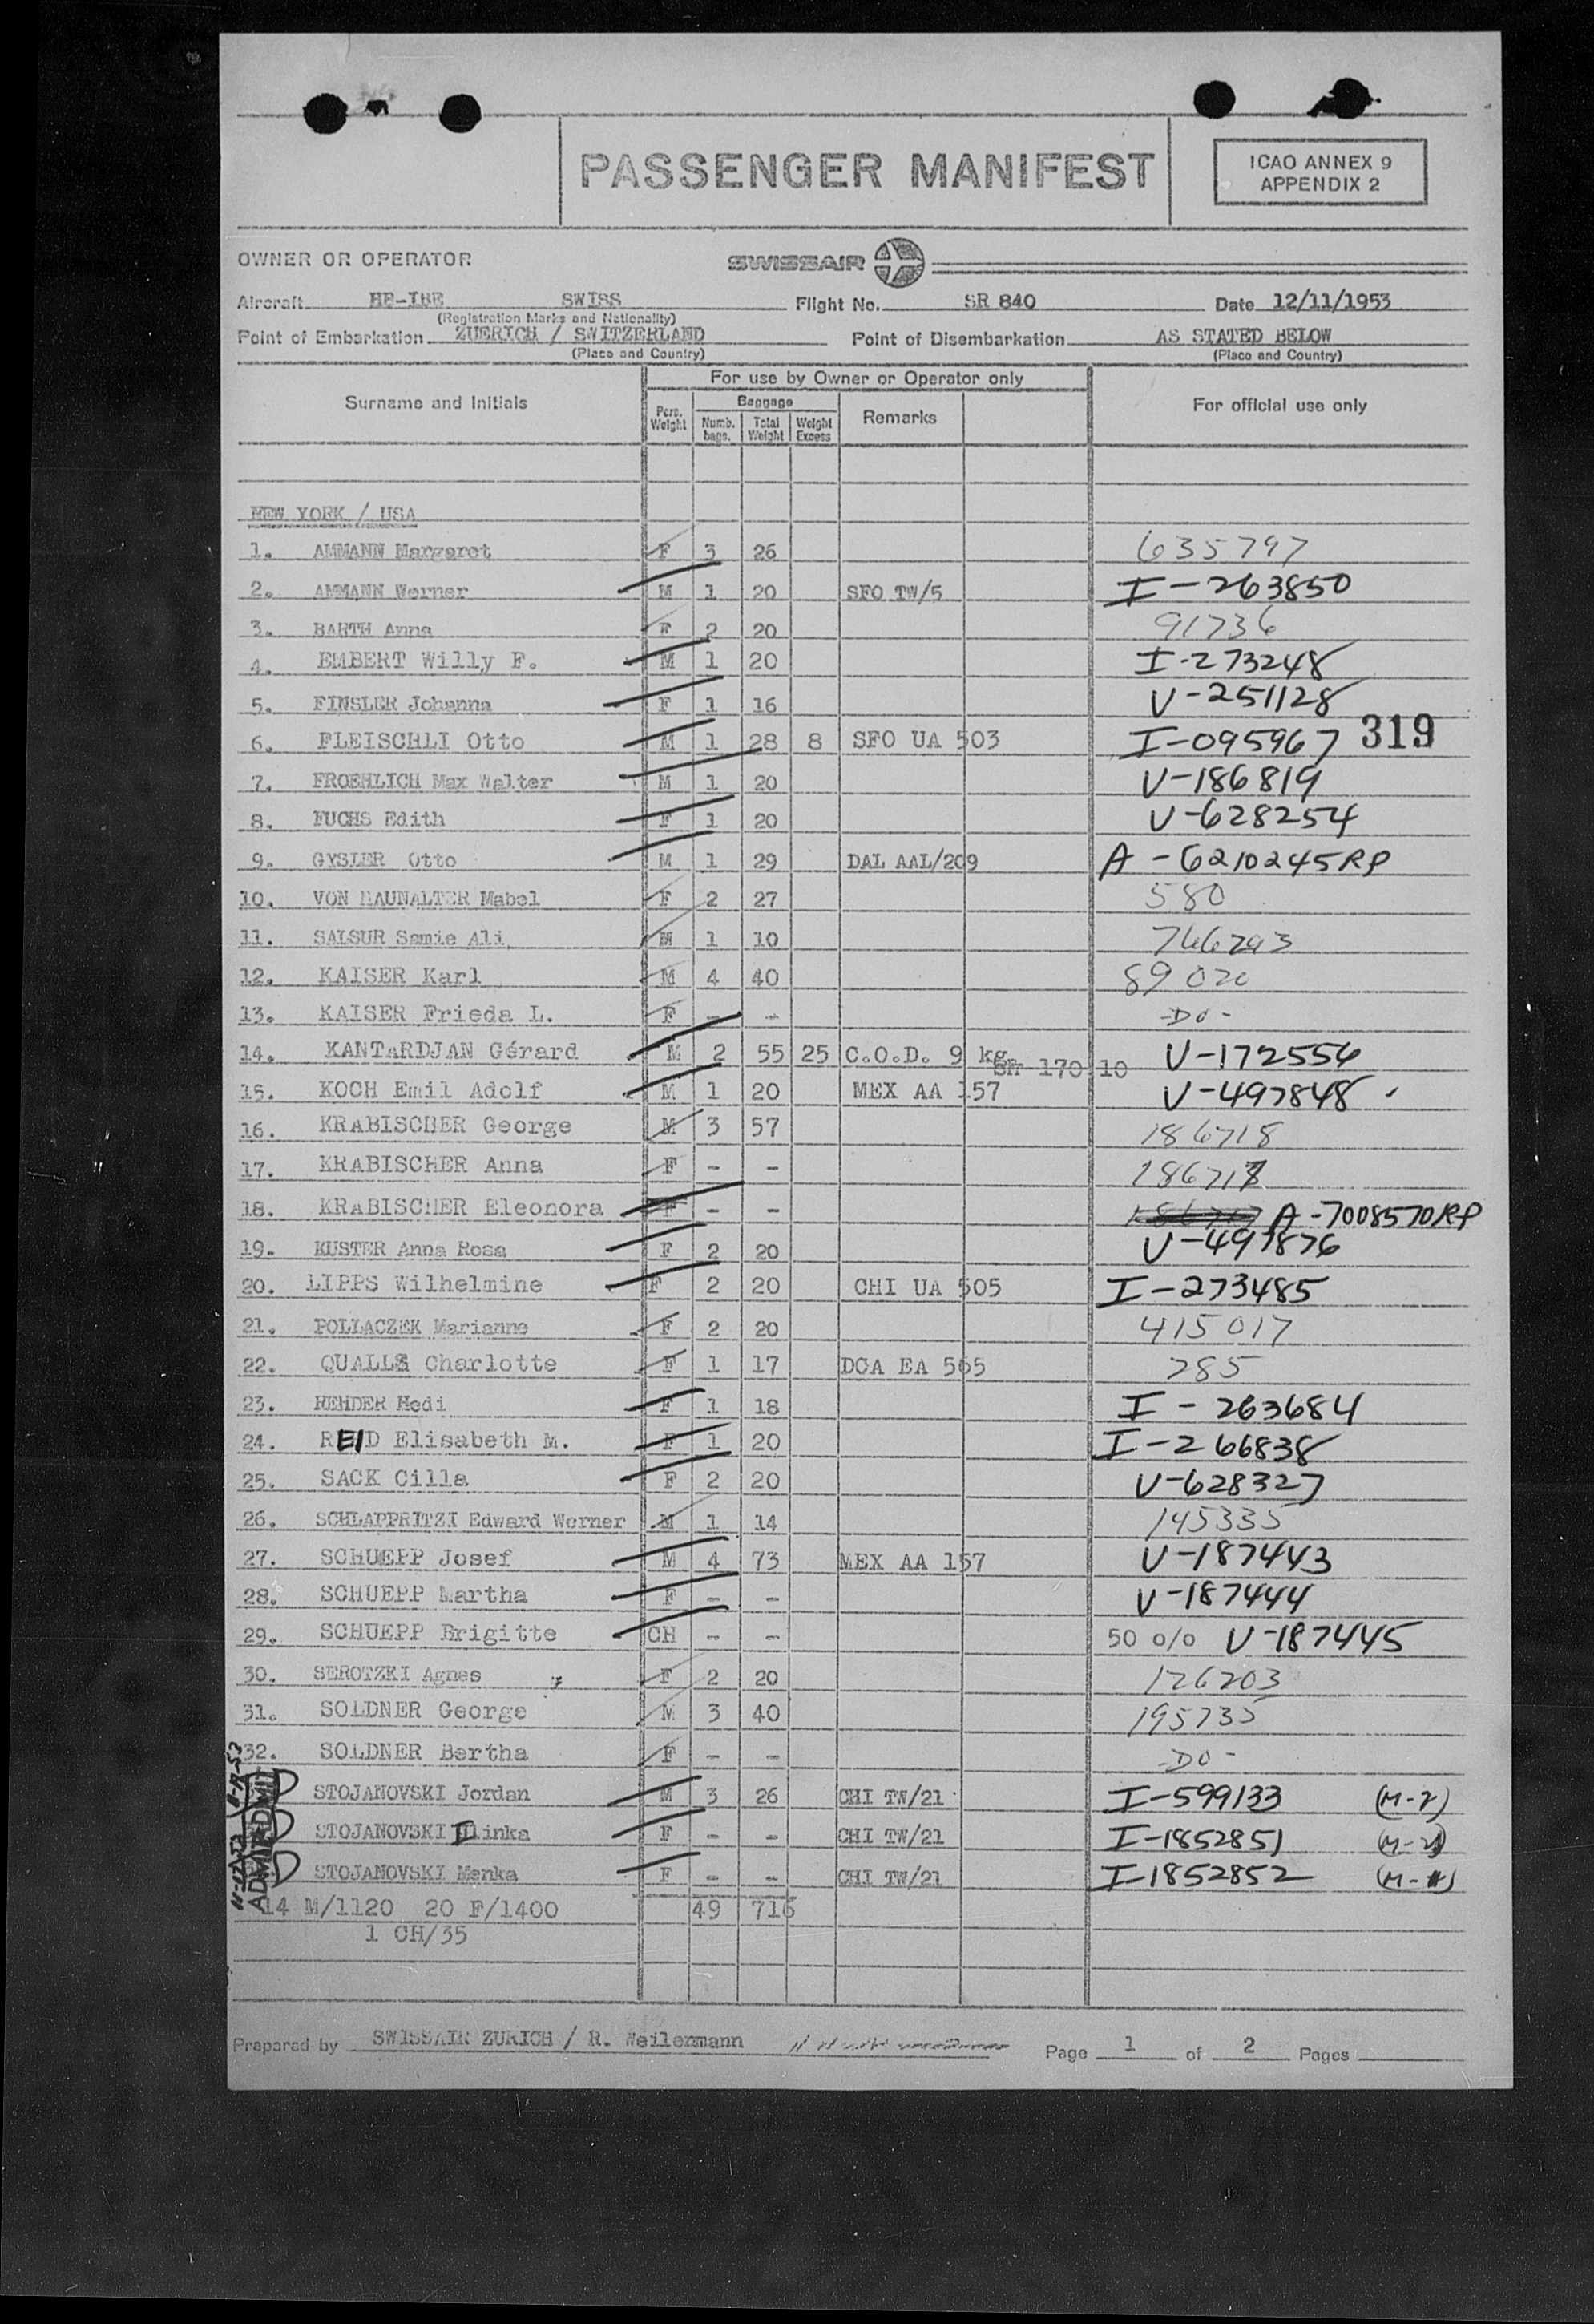 PASSENGER MANIFEST
ICAO ANNEX 9
APPENDIX 2
OWNER OR OPERATOR SWISSAIR
Aircraft HB-IBE SWISS Flight No. SR 840 Date 12/11/1953
(Registration Marks and Nationality)
Point of Embarkation ZUERICH / SWITZERLAND Point of Disembarkation AS STATED BELOW
(Place and Country) (Place and Country)
For use by Owner or Operator only
Surname and Initials Pers. Weight Baggage Numb. bags. Total Weight Weight Excess Remarks For official use only
NEW YORK / USA
1. AMMANN Margaret F 3 26 635797
2. AMMANN Werner M 1 20 SFO TW/5 I-263850
3. BARTH Anna F 2 20 91736
4. EMBERT Willy F. M 1 20 I-273248
5. FINSLER Johanna F 1 16 V-251128
6. FLEISCHLI Otto M 1 28 8 SFO UA 503 I-095967 319
7. FROEHLICH Max Walter M 1 20 V-186819
8. FUCHS Edith F 1 20 V-628254
9. GYSLER Otto M 1 29 DAL AAL/209 A-6210245RP
10. VON HAUNALTER Mabel F 2 27 580
11. SALSUR Samie Ali M 1 10 746293
12. KAISER Karl M 4 40 89020
13. KAISER Frieda L. F - - -DO-
14. KANTARDJAN Gérard M 2 55 25 C.O.D. 9 kg V-172556
SFr 170.10
15. KOCH Emil Adolf M 1 20 MEX AA 157 V-497848
16. KRABISCHER George M 3 57 186718
17. KRABISCHER Anna F - - 186717
18. KRABISCHER Eleonora F - - A-7008570RP
19. KUSTER Anna Rosa F 2 20 V-497876
20. LIPPS Wilhelmine F 2 20 CHI UA 505 I-273485
21. POLLACZEK Marianne F 2 20 415017
22. QUALLS Charlotte F 1 17 DCA EA 565 285
23. REHDER Hedi F 1 18 I-263684
24. REID Elisabeth M. F 1 20 I-266838
25. SACK Cilla F 2 20 V-628327
26. SCHLAPPRITZI Edward Werner M 1 14 145335
27. SCHUEPP Josef M 4 73 MEX AA 157 V-187443
28. SCHUEPP Martha F - - V-187444
29. SCHUEPP Brigitte CH - - 50 o/o V-187445
30. SEROTZKI Agnes F 2 20 126203
31. SOLDNER George M 3 40 195735
32. SOLDNER Bertha F - - -DO-
STOJANOVSKI Jordan M 3 26 CHI TW/21 I-599133 (M-2)
STOJANOVSKI Ilinka F - - CHI TW/21 I-1852851
STOJANOVSKI Menka F - - CHI TW/21 I-1852852
ADMITTED
14 M/1120 20 F/1400 49 716
1 CH/35
Prepared by SWISSAIR ZURICH / R. Weilenmann Page 1 of 2 Pages